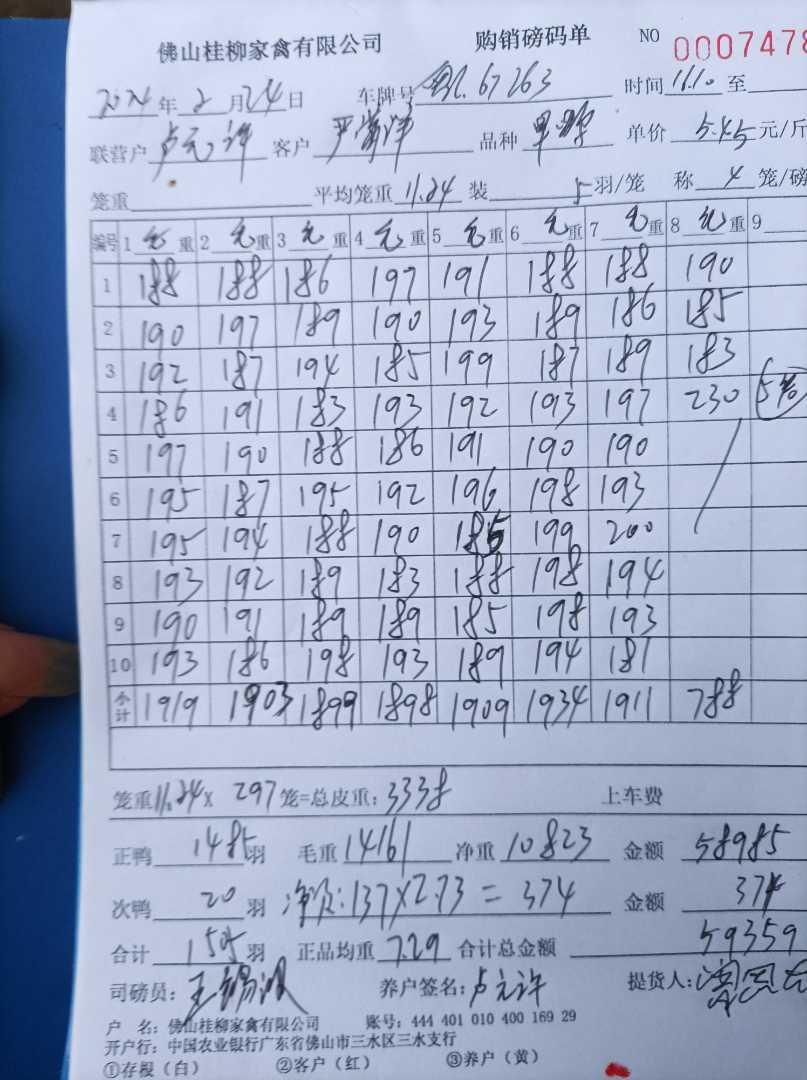 佛山桂柳家禽有限公司 购销磅码单 NO 0007478
2024年2月24日 车牌号 67263 时间 11.10 至
联营户 卢元许 客户 品种 单价 5.45 元/斤
笼重 平均笼重 11.24 装 5 羽/笼 称 4 笼/磅
编号 1 毛重 2 毛重 3 毛重 4 毛重 5 毛重 6 毛重 7 毛重 8 毛重 9
1 188 188 186 197 191 188 188 190
2 190 197 189 190 193 189 186 185
3 192 187 194 185 199 187 189 183
4 186 191 183 193 192 193 197 230 5笼
5 197 190 188 186 191 190 190
6 195 187 195 192 196 198 193
7 195 194 188 190 185 199 200
8 193 192 189 183 188 198 194
9 190 191 189 189 185 198 193
10 193 186 198 193 189 194 181
小计 1919 1903 1899 1898 1909 1934 1911 788
笼重 11.24 X 297 笼=总皮重: 3338 上车费
正鸭 1485 羽 毛重 14161 净重 10823 金额 58985
次鸭 20 羽 净重: 137×2.73 = 374 金额 374
合计 1505 羽 正品均重 7.29 合计总金额 59359
司磅员: 王锡 养户签名: 卢元许 提货人:
户 名: 佛山桂柳家禽有限公司 账号: 444 401 010 400 169 29
开户行: 中国农业银行广东省佛山市三水区三水支行
①存根（白） ②客户（红） ③养户（黄）